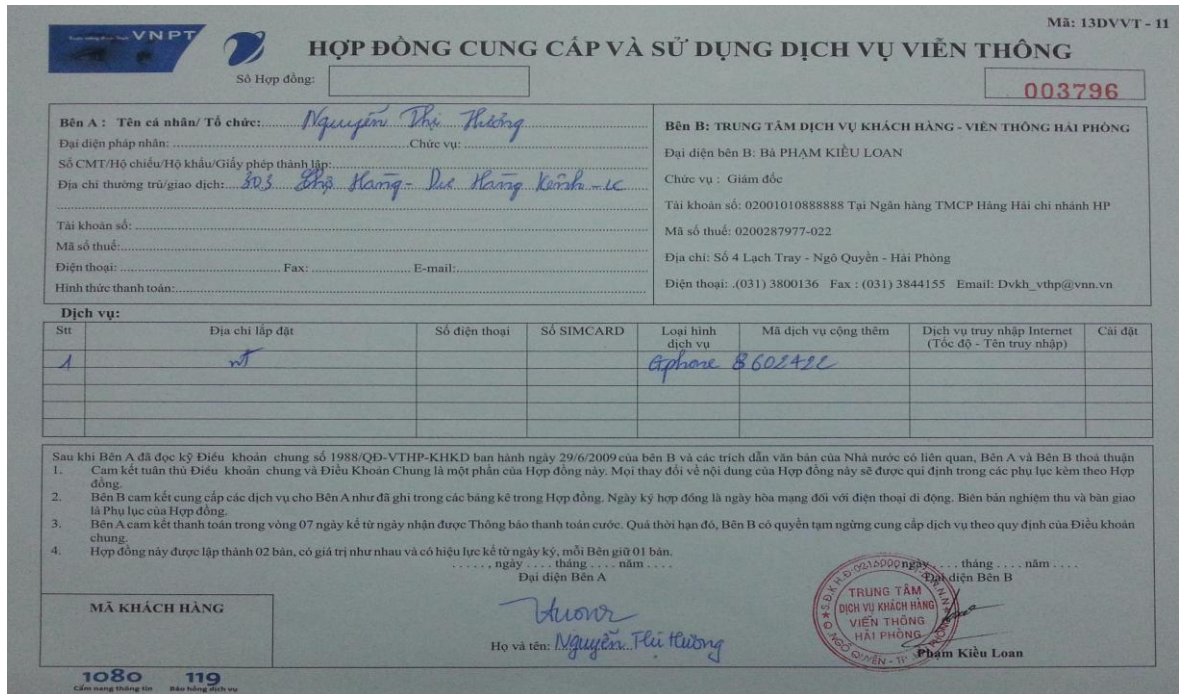 Mã: 13DVVT - 11
VNPT
HỢP ĐỒNG CUNG CẤP VÀ SỬ DỤNG DỊCH VỤ VIỄN THÔNG
Số Hợp đồng:
003796
Bên A : Tên cá nhân/ Tổ chức: Nguyễn Thị Hường
Đại diện pháp nhân: Chức vụ:
Số CMT/Hộ chiếu/Hộ khẩu/Giấy phép thành lập:
Địa chỉ thường trú/giao dịch: 303 Chợ Hàng - Dư Hàng Kênh - LC
Tài khoản số:
Mã số thuế:
Điện thoại: Fax: E-mail:
Hình thức thanh toán:
Bên B: TRUNG TÂM DỊCH VỤ KHÁCH HÀNG - VIỄN THÔNG HẢI PHÒNG
Đại diện bên B: Bà PHẠM KIỀU LOAN
Chức vụ : Giám đốc
Tài khoản số: 02001010888888 Tại Ngân hàng TMCP Hàng Hải chi nhánh HP
Mã số thuế: 0200287977-022
Địa chỉ: Số 4 Lạch Tray - Ngô Quyền - Hải Phòng
Điện thoại: .(031) 3800136 Fax : (031) 3844155 Email: Dvkh_vthp@vnn.vn
Dịch vụ:
Stt Địa chỉ lắp đặt Số điện thoại Số SIMCARD Loại hình dịch vụ Mã dịch vụ cộng thêm Dịch vụ truy nhập Internet (Tốc độ - Tên truy nhập) Cài đặt
1 nt Gphone 8602422
Sau khi Bên A đã đọc kỹ Điều khoản chung số 1988/QĐ-VTHP-KHKD ban hành ngày 29/6/2009 của bên B và các trích dẫn văn bản của Nhà nước có liên quan, Bên A và Bên B thoả thuận
1. Cam kết tuân thủ Điều khoản chung và Điều Khoản Chung là một phần của Hợp đồng này. Mọi thay đổi về nội dung của Hợp đồng này sẽ được qui định trong các phụ lục kèm theo Hợp
đồng.
2. Bên B cam kết cung cấp các dịch vụ cho Bên A như đã ghi trong các bảng kê trong Hợp đồng. Ngày ký hợp đồng là ngày hòa mạng đối với điện thoại di động. Biên bản nghiệm thu và bàn giao
là Phụ lục của Hợp đồng.
3. Bên A cam kết thanh toán trong vòng 07 ngày kể từ ngày nhận được Thông báo thanh toán cước. Quá thời hạn đó, Bên B có quyền tạm ngừng cung cấp dịch vụ theo quy định của Điều khoản
chung.
4. Hợp đồng này được lập thành 02 bản, có giá trị như nhau và có hiệu lực kể từ ngày ký, mỗi Bên giữ 01 bản.
. . . . . , ngày . . . . tháng . . . . năm . . . .
Đại diện Bên A
ngày . . . . tháng . . . . năm . . . .
Đại diện Bên B
MÃ KHÁCH HÀNG
Hương
Họ và tên: Nguyễn Thị Hường
TRUNG TÂM
DỊCH VỤ KHÁCH HÀNG
VIỄN THÔNG
HẢI PHÒNG
Phạm Kiều Loan
1080 119
Cẩm nang thông tin Báo hỏng dịch vụ